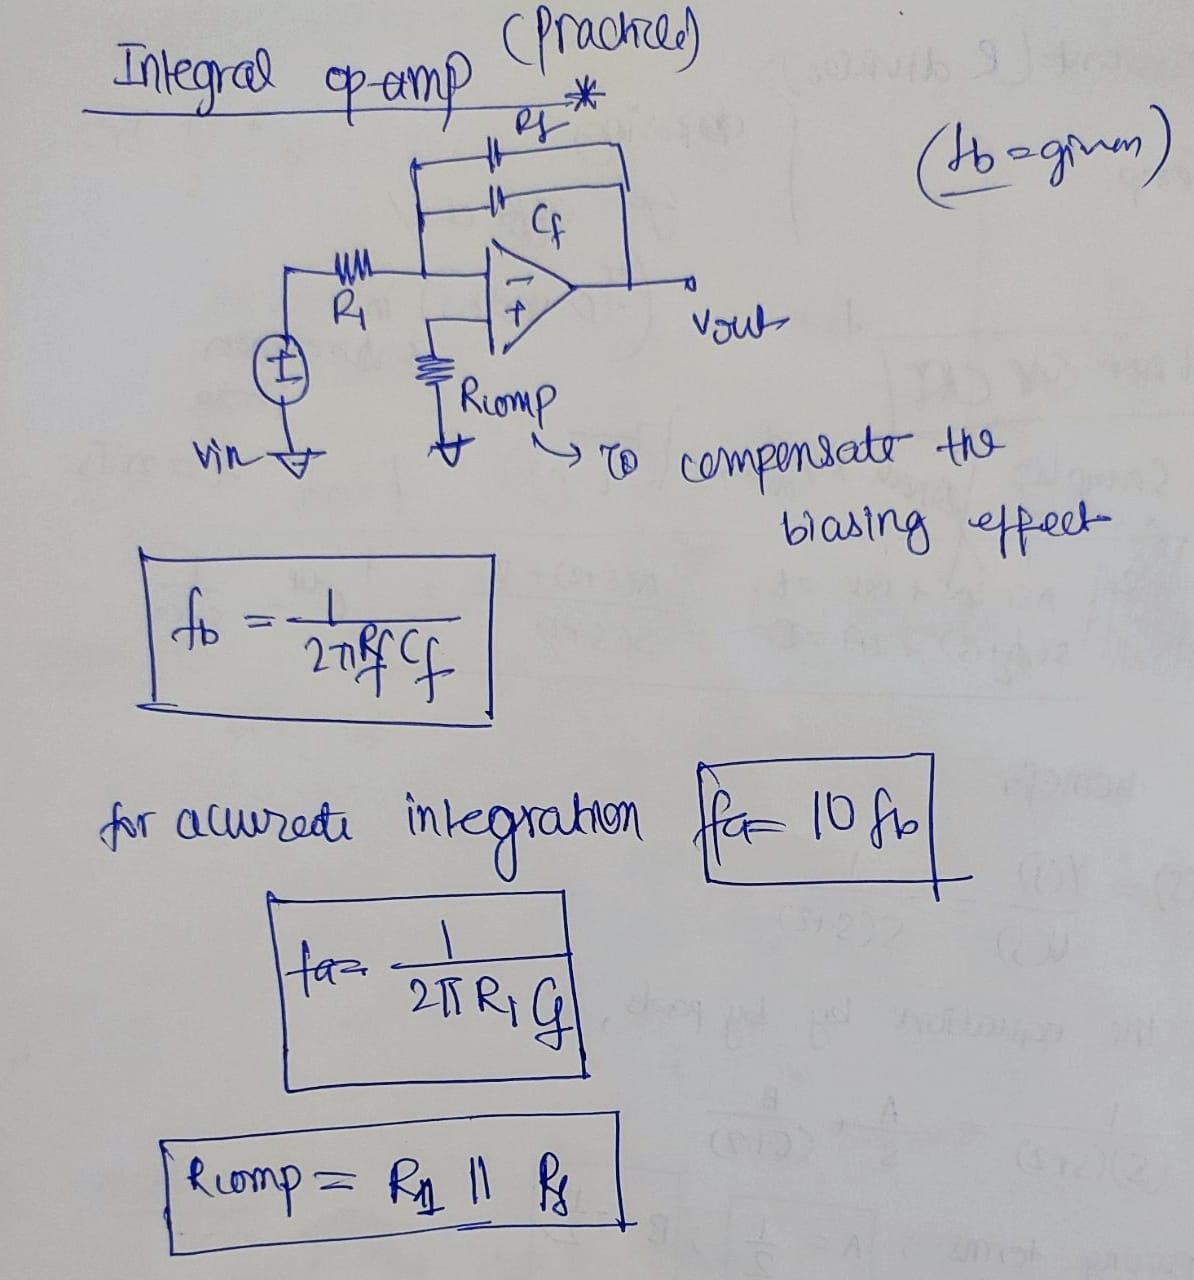 Integral op-amp (Practical)
*
Rf
(fb = given)
Cf
R1
-
+
Vout
Rcomp
Vin
→ To compensate the
biasing effect
fb = 1 / 2πRfCf
for accurate integration fa = 10 fb
fa = 1 / 2π R1 Cf
Rcomp = R1 || Rf